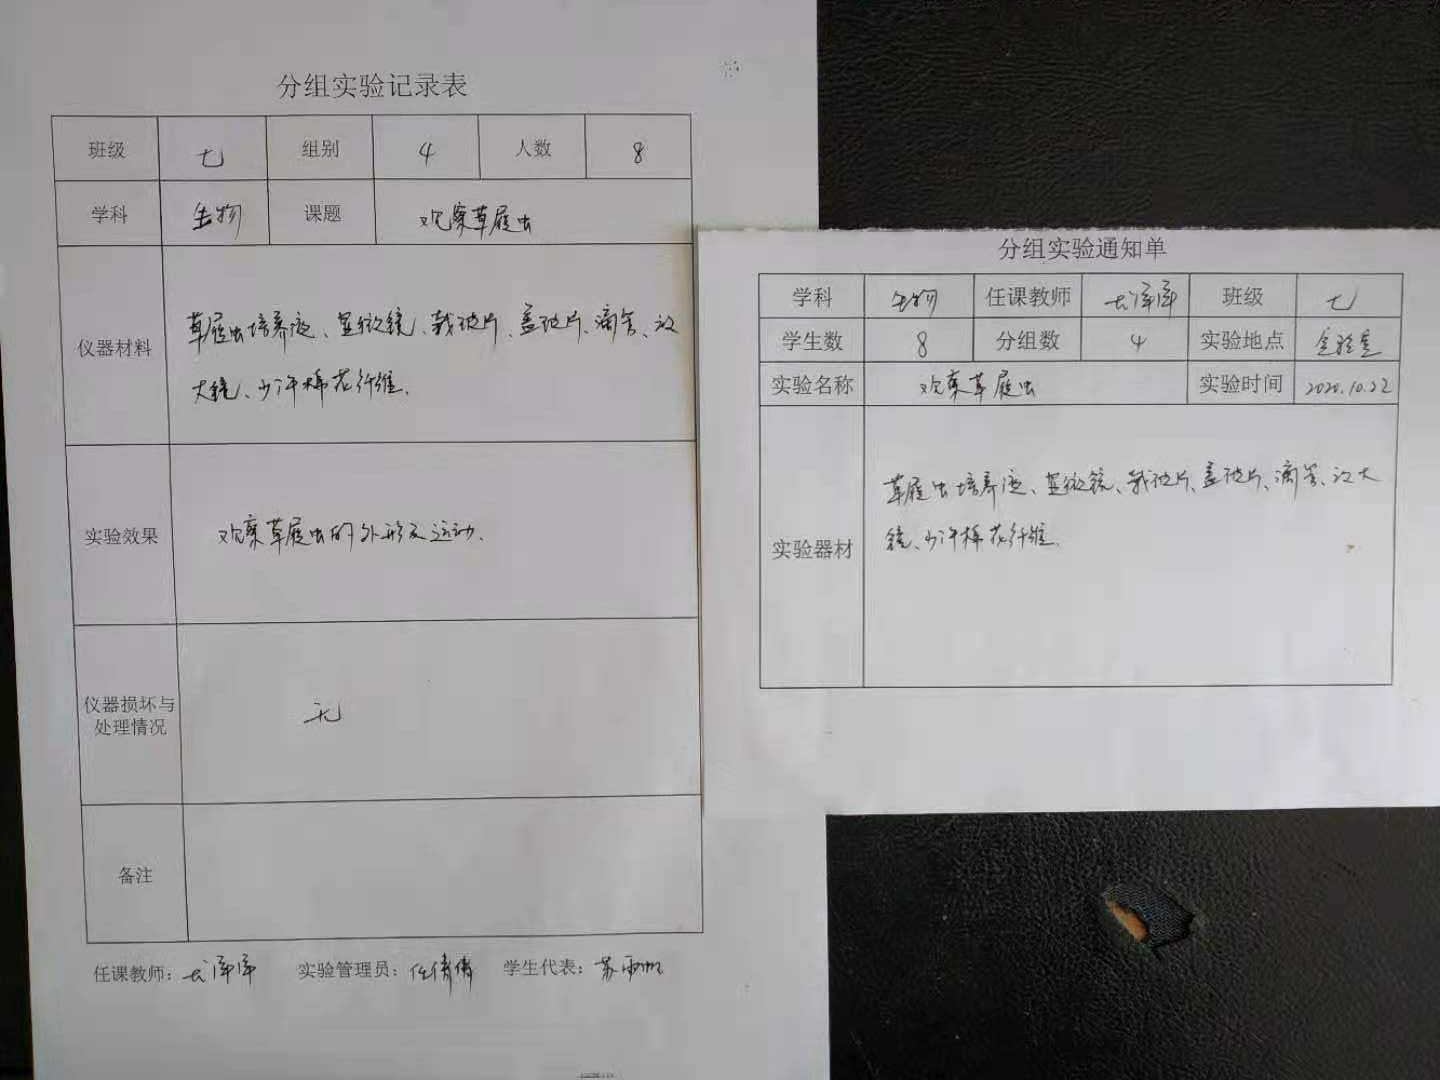 分组实验记录表
班级 七 组别 4 人数 8
学科 生物 课题 观察草履虫
仪器材料 草履虫培养液、显微镜、载玻片、盖玻片、滴管、放
大镜、少许棉花纤维.
实验效果 观察草履虫的外形及运动.
仪器损坏与
处理情况 无
备注
任课教师: 实验管理员: 任倩倩 学生代表: 苏
分组实验通知单
学科 生物 任课教师 班级 七
学生数 8 分组数 4 实验地点 实验室
实验名称 观察草履虫 实验时间 2020.10.22
实验器材 草履虫培养液、显微镜、载玻片、盖玻片、滴管、放大
镜、少许棉花纤维.